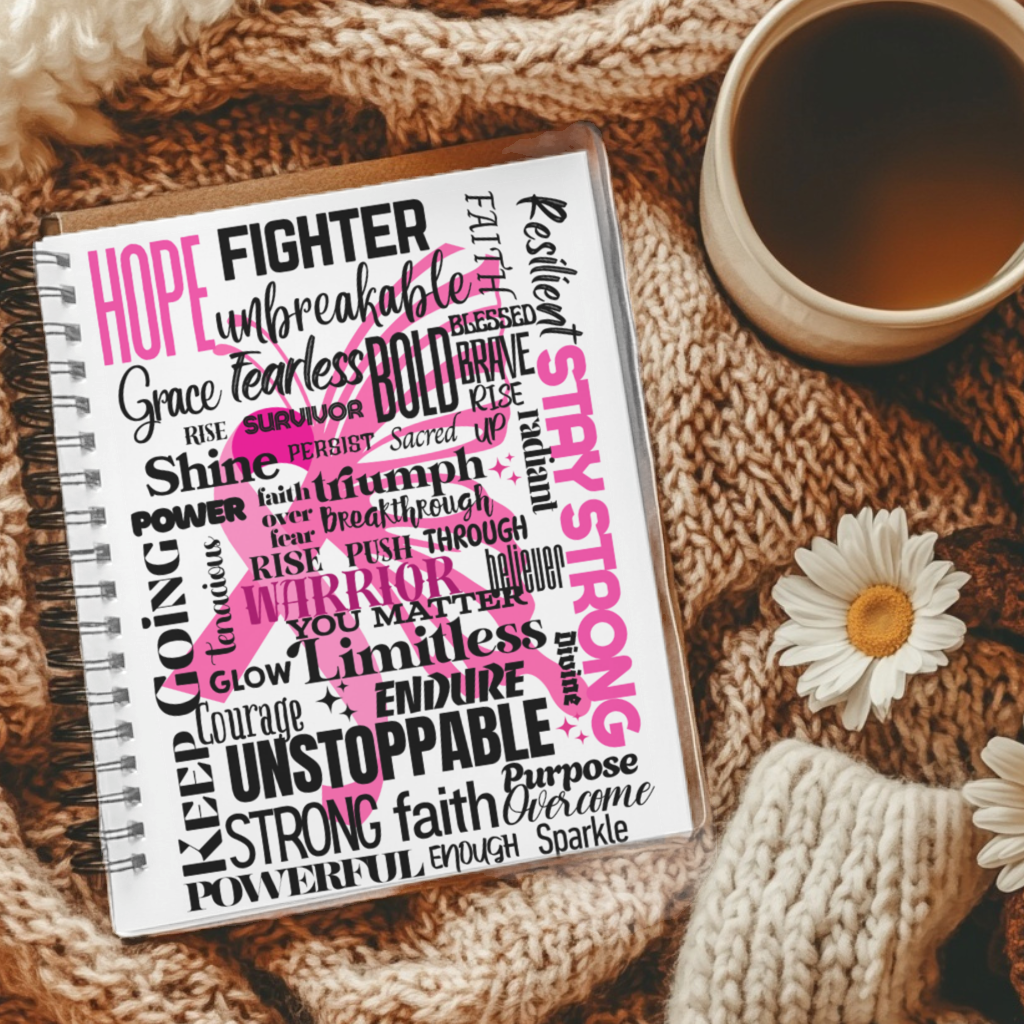 HOPE
FIGHTER
unbreakable
FAITH
Resilient
Grace
fearless
BOLD
BLESSED
BRAVE
RISE
UP
RISE
SURVIVOR
PERSIST
Sacred
radiant
STAY STRONG
Shine
faith
over
fear
triumph
Breakthrough
POWER
RISE
PUSH
THROUGH
believer
KEEP GOING
tenacious
WARRIOR
YOU MATTER
GLOW
Limitless
Divine
Courage
ENDURE
UNSTOPPABLE
STRONG
faith
Purpose
Overcome
POWERFUL
ENOUGH
Sparkle